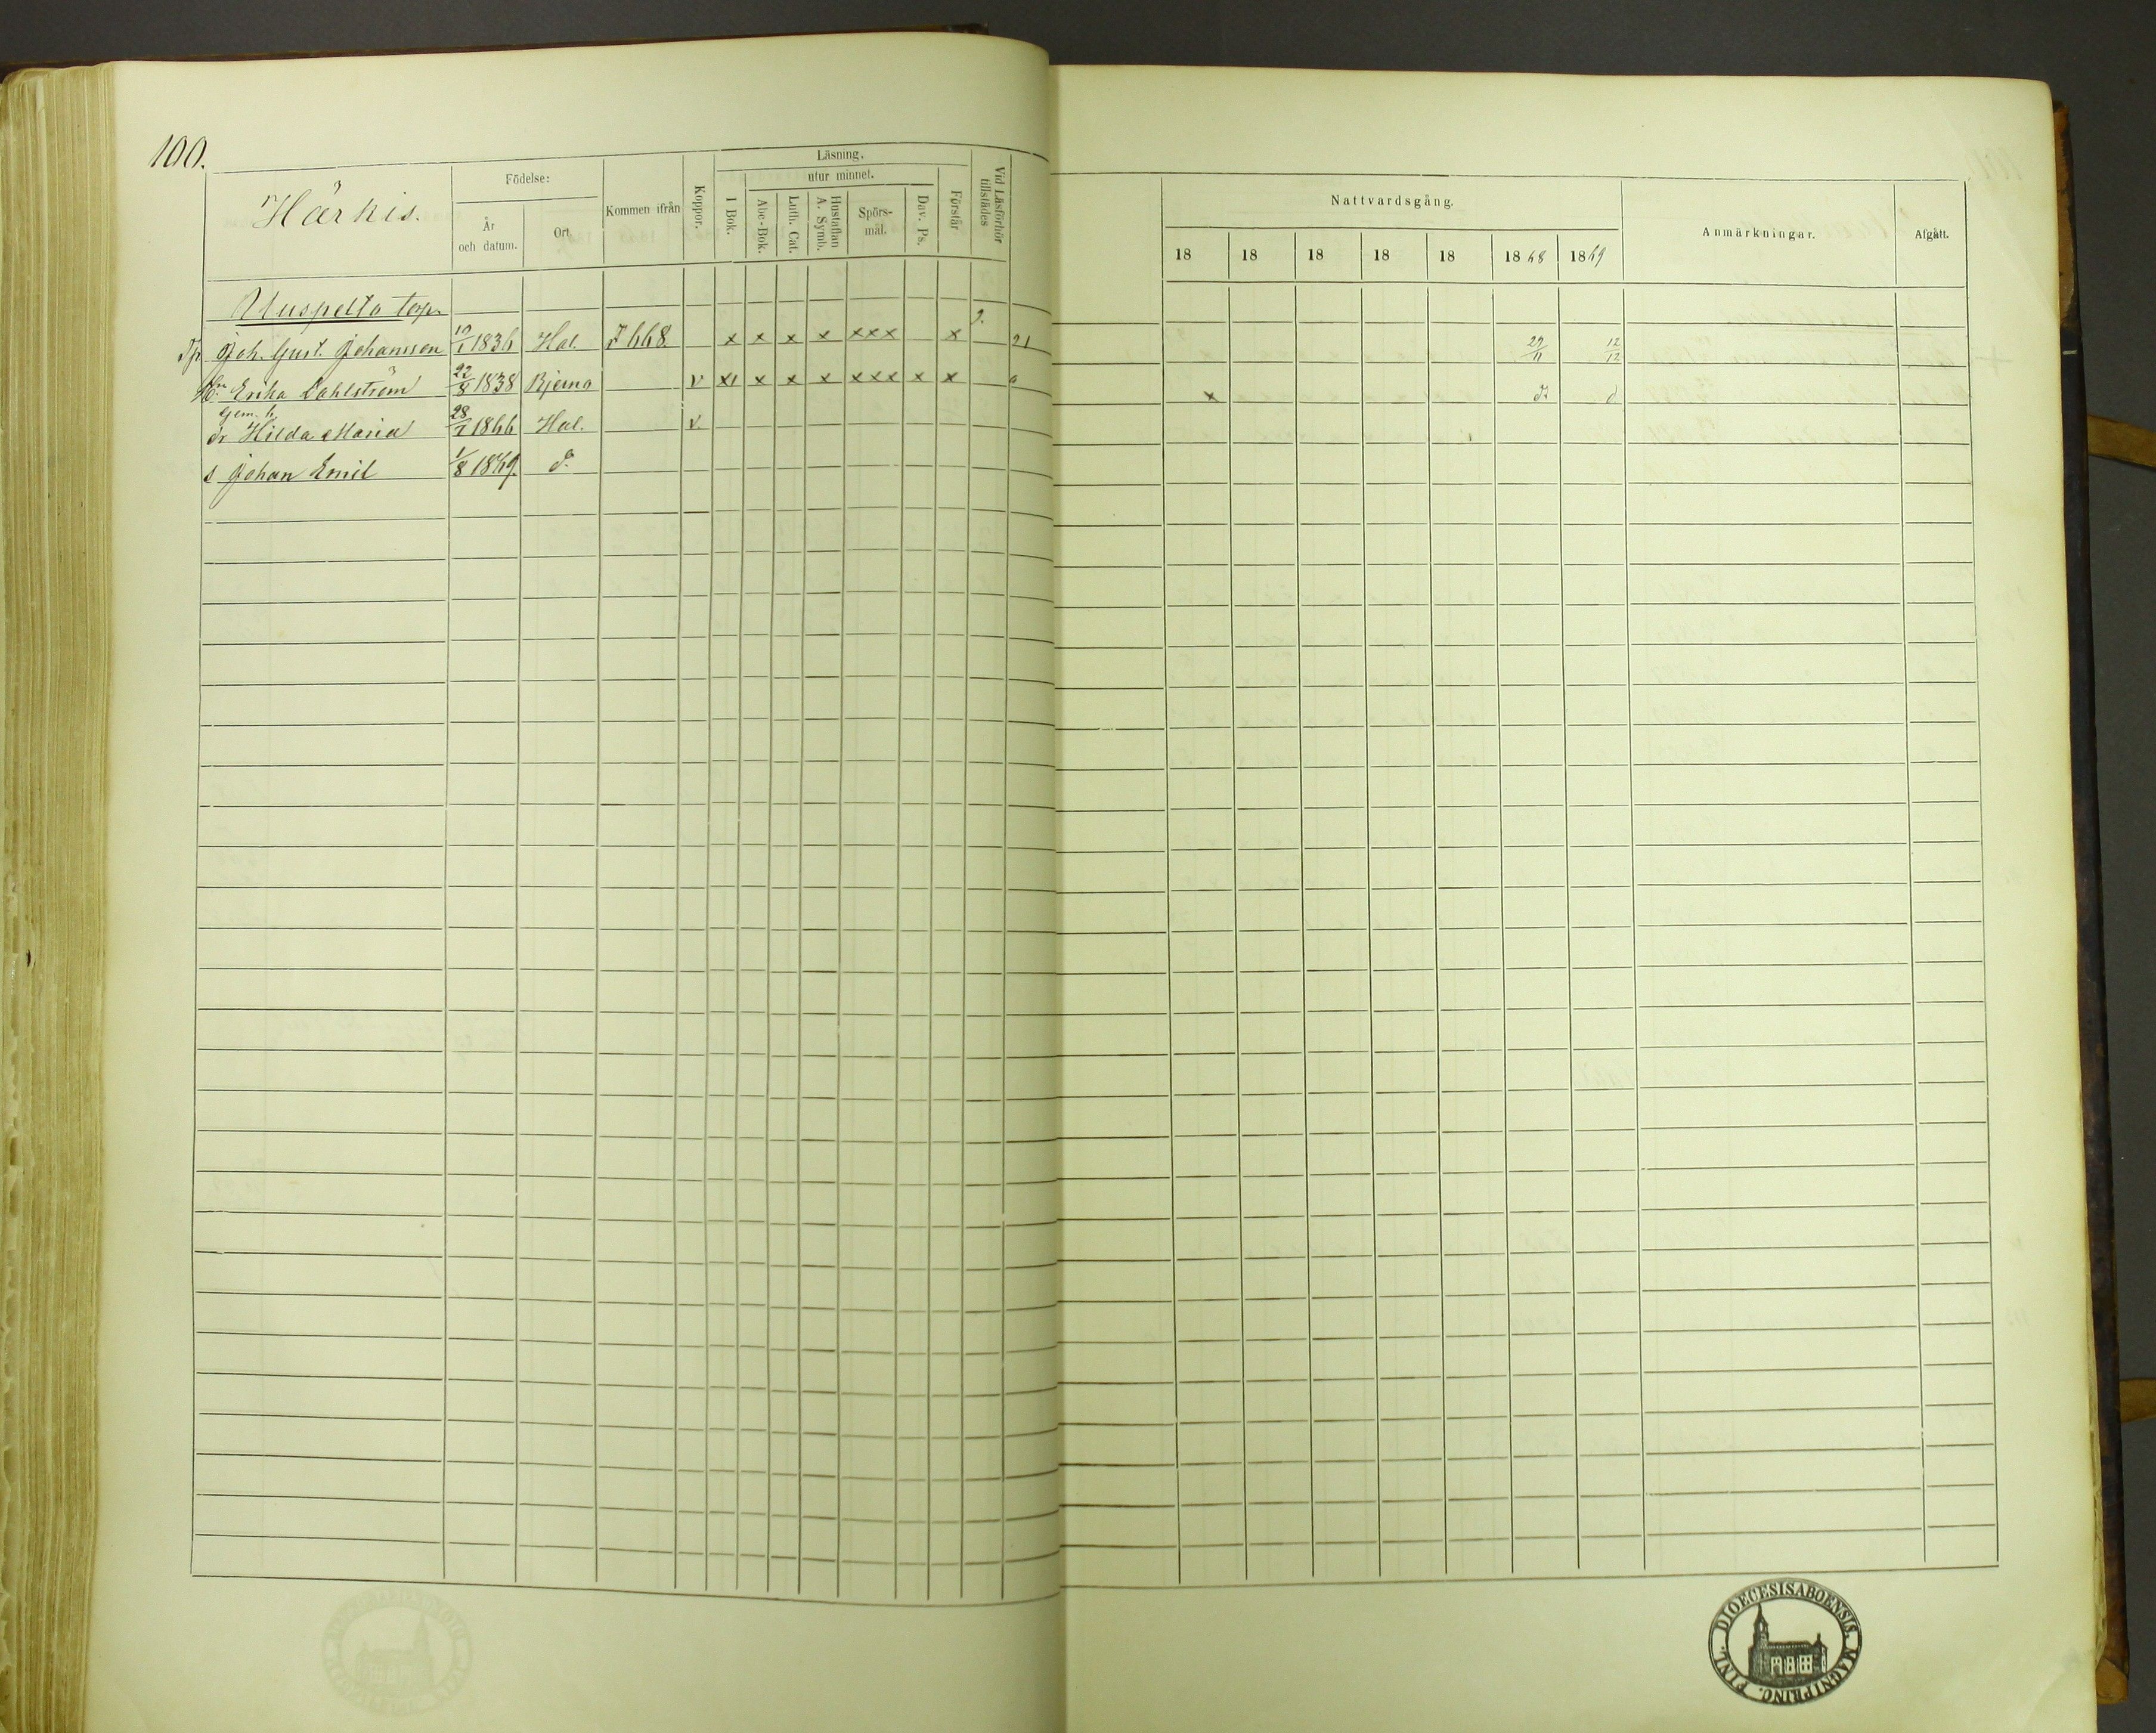 100.
Härkis.
Födelse:
År och datum.
Ort
Kommen ifrån
Koppor.
Läsning.
I Bok.
utur minnet.
Abc-Bok.
Luth. Cat.
Hustaflan A. Symb.
Spörs-mål.
Dav. Ps.
Förstår
Vid Läsförhör tillstädes
Nattvardsgång.
18 18 18 18 18 1868 1869
Anmärkningar.
Afgått.
Uuspelto torp.
Joh. Gust. Johansson 19/1 1836 Hal. F 668. x x x x xxx x 21 29/11 12/12
Hu. Erika Dahlström 22/8 1838 Bjerno v x x x xxx x x x
Gem. b.
dr Hilda Maria 28/1 1866 Hal. v.
s Johan Emil 1/8 1869. do
DIOECESIS ABOENSIS. MAGNI PRINC. FINL.